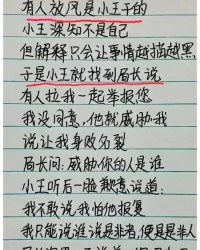 有人放风是小王干的
小王深知不是自己
但解释只会让事情越描越黑
于是小王就找到局长说
有人拉我一起举报您
我没同意，他就威胁我
说让我身败名裂
局长问：威胁你的人是谁
小王听后一脸歉意说道：
我不敢说我怕他报复
我只能说谁说是非者，便是是非人